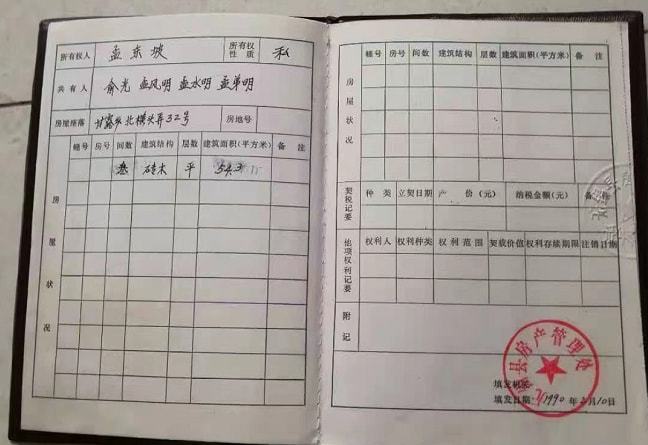 所有权人 孟东坡 所有权性质 私
共有人 俞光 孟风明 孟水明 孟弟明
房屋座落 甘露乡北横头弄32号 房地号
房屋状况
幢号 房号 间数 建筑结构 层数 建筑面积(平方米) 备注
砖木 平 54.3
幢号 房号 间数 建筑结构 层数 建筑面积(平方米) 备注
房屋状况
契税记要 种类 立契日期 产价(元) 纳税金额(元) 备注
他项权利记要 权利人 权利种类 权利范围 契载价值 权利存续期限 注销日期
附记
县房产管理
填发机关
填发日期 1990年 月10日